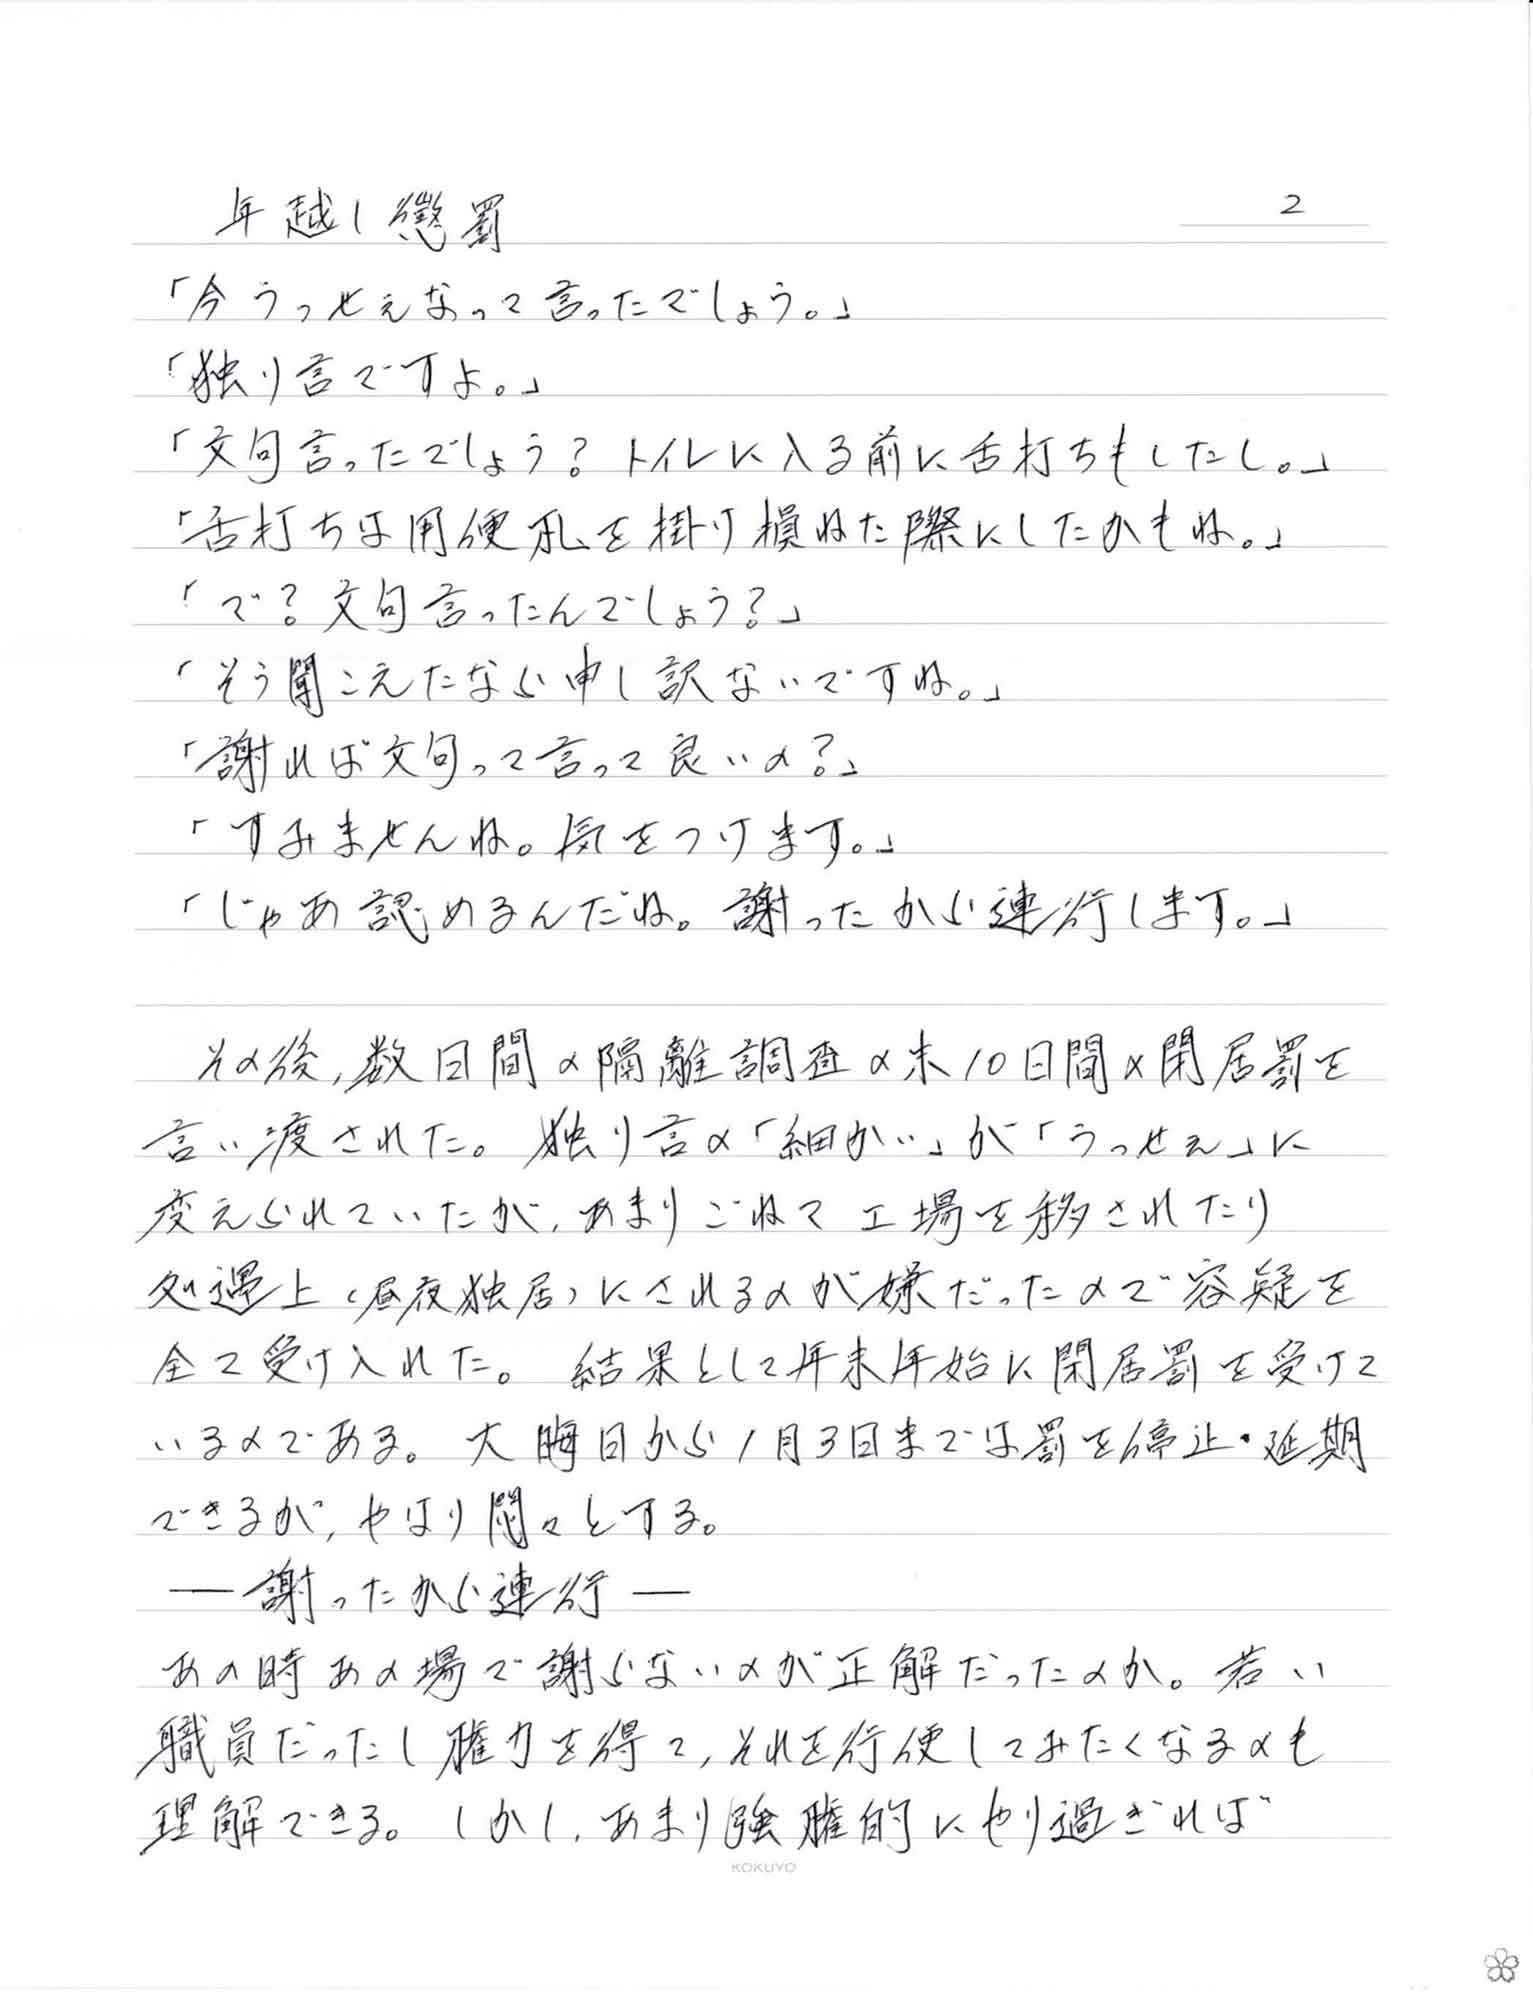 年越し懲罰
2
「今うっせぇなって言ったでしょう。」
「独り言ですよ。」
「文句言ったでしょう？トイレに入る前に舌打ちもしたし。」
「舌打ちは用便札を掛け損ねた際にしたかもね。」
「で？文句言ったんでしょう？」
「そう聞こえたなら申し訳ないですね。」
「謝れば文句って言って良いの？」
「すみませんね。気をつけます。」
「じゃあ認めるんだね。謝ったから連行します。」
その後，数日間の隔離調査の末10日間の閉居罰を
言い渡された。独り言の「細かい」が「うっせぇ」に
変えられていたが，あまりごねて工場を移されたり
処遇上（昼夜独居）にされるのが嫌だったので容疑を
全て受け入れた。結果として年末年始に閉居罰を受けて
いるのである。大晦日から1月3日までは罰を停止・延期
できるが，やはり悶々とする。
―謝ったから連行―
あの時あの場で謝らないのが正解だったのか。若い
職員だったし権力を得て，それを行使してみたくなるのも
理解できる。しかし，あまり強権的にやり過ぎれば
KOKUYO